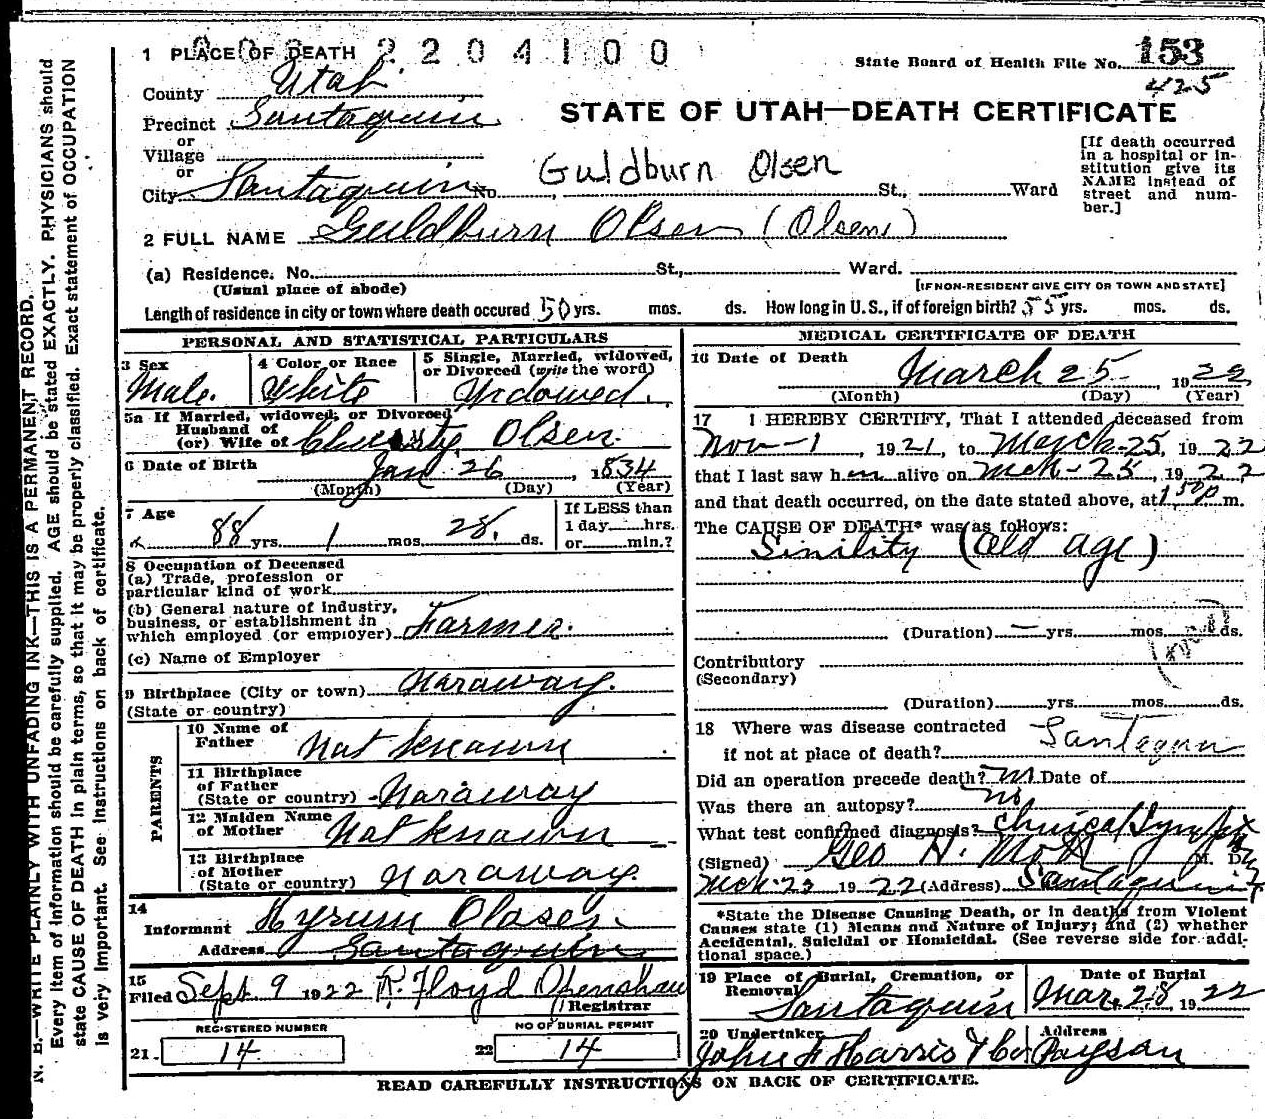 1 PLACE OF DEATH 2204100
State Board of Health File No. 153
425
County Utah
STATE OF UTAH—DEATH CERTIFICATE
Precinct Santaquin
or
Village
or
City Santaquin No. St., Ward
Guldburn Olsen
[If death occurred in a hospital or institution give its NAME instead of street and number.]
2 FULL NAME Guldburn Olsen (Olsen)
(a) Residence. No. St., Ward.
(Usual place of abode) [IF NON-RESIDENT GIVE CITY OR TOWN AND STATE]
Length of residence in city or town where death occured 50 yrs. mos. ds. How long in U. S., if of foreign birth? 55 yrs. mos. ds.
PERSONAL AND STATISTICAL PARTICULARS
3 Sex Male.
4 Color or Race White
5 Single, Married, widowed, or Divorced (write the word) Widowed.
5a If Married, widowed, or Divorced
Husband of
(or) Wife of Olsen.
6 Date of Birth Jan 26, 1834
(Month) (Day) (Year)
7 Age 88 yrs. 1 mos. 28. ds.
If LESS than
1 day hrs.
or min.?
8 Occupation of Deceased
(a) Trade, profession or
particular kind of work
(b) General nature of industry,
business, or establishment in
which employed (or employer) Farmer.
(c) Name of Employer
9 Birthplace (City or town) Naraway.
(State or country)
PARENTS
10 Name of
Father Not Known
11 Birthplace
of Father
(State or country) Naraway
12 Maiden Name
of Mother Not Known
13 Birthplace
of Mother
(State or country) Naraway.
14
Informant Hyrum Olasen
Address Santaquin
15
Filed Sept. 9 1922 R. Floyd Openshaw
Registrar
REGISTERED NUMBER
21. 14
NO OF BURIAL PERMIT
22 14
MEDICAL CERTIFICATE OF DEATH
16 Date of Death March 25, 1922
(Month) (Day) (Year)
17 I HEREBY CERTIFY, That I attended deceased from
Nov-1, 1921, to March-25, 1922
that I last saw him alive on Mch-25, 1922
and that death occurred, on the date stated above, at 1 50 p m.
The CAUSE OF DEATH* was as follows:
Sinility (Old age)
(Duration) yrs. mos. ds.
Contributory
(Secondary)
(Duration) yrs. mos. ds.
18 Where was disease contracted
if not at place of death? Santaquin
Did an operation precede death? no Date of
Was there an autopsy? no
What test confirmed diagnosis? Clinical
(Signed) Geo H. M. D.
Mch. 23 1922 (Address) Santaquin
*State the Disease Causing Death, or in deaths from Violent
Causes state (1) Means and Nature of Injury; and (2) whether
Accidental, Suicidal or Homicidal. (See reverse side for additional space.)
19 Place of Burial, Cremation, or
Removal Santaquin
Date of Burial
Mar. 28, 1922
20 Undertaker
John F Harris & Co.
Address
Payson
READ CAREFULLY INSTRUCTIONS ON BACK OF CERTIFICATE.
N. B.—WRITE PLAINLY WITH UNFADING INK—THIS IS A PERMANENT RECORD.
Every item of information should be carefully supplied. AGE should be stated EXACTLY. PHYSICIANS should
state CAUSE OF DEATH in plain terms, so that it may be properly classified. Exact statement of OCCUPATION
is very important. See instructions on back of certificate.